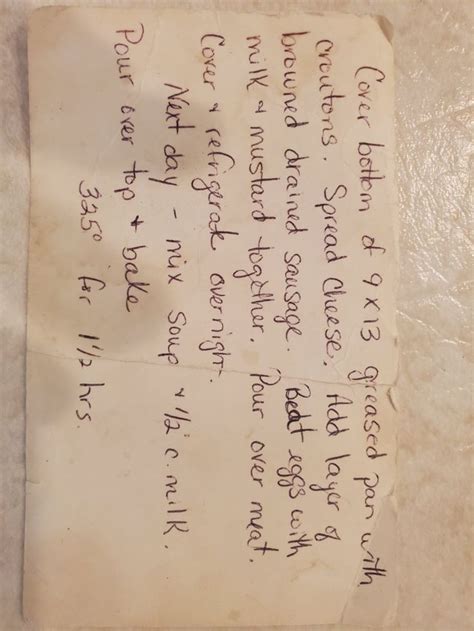 Cover bottom of 9 x 13 greased pan with
croutons. Spread cheese. Add layer of
browned drained sausage. Beat eggs with
milk & mustard together. Pour over meat.
Cover & refrigerate overnight.
Next day - mix soup & 1/2 c. milk.
Pour over top & bake
325° for 1 1/2 hrs.